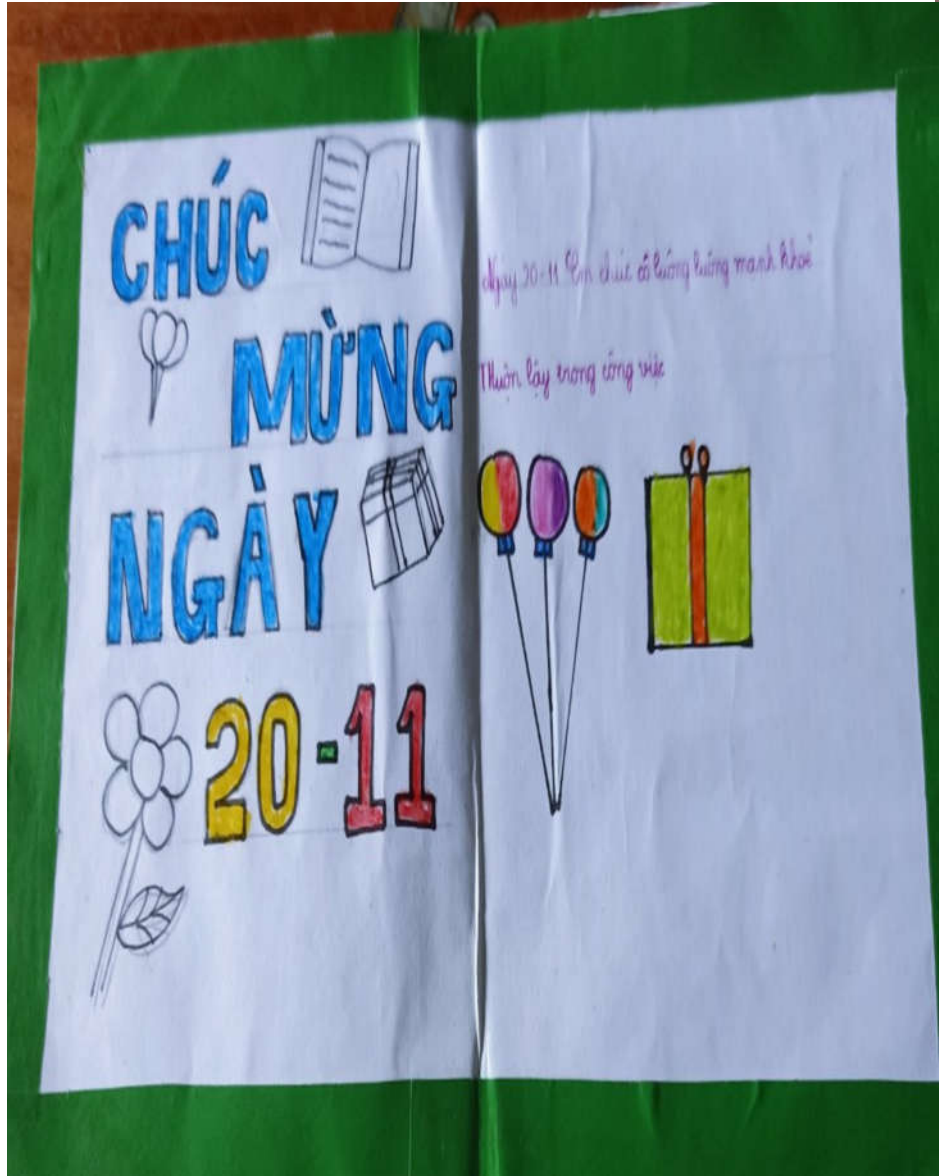 CHÚC
MỪNG
NGÀY
20-11
Ngày 20-11 Em chúc cô luông luông mạnh khoẻ
Thuộn lấy trong công việc